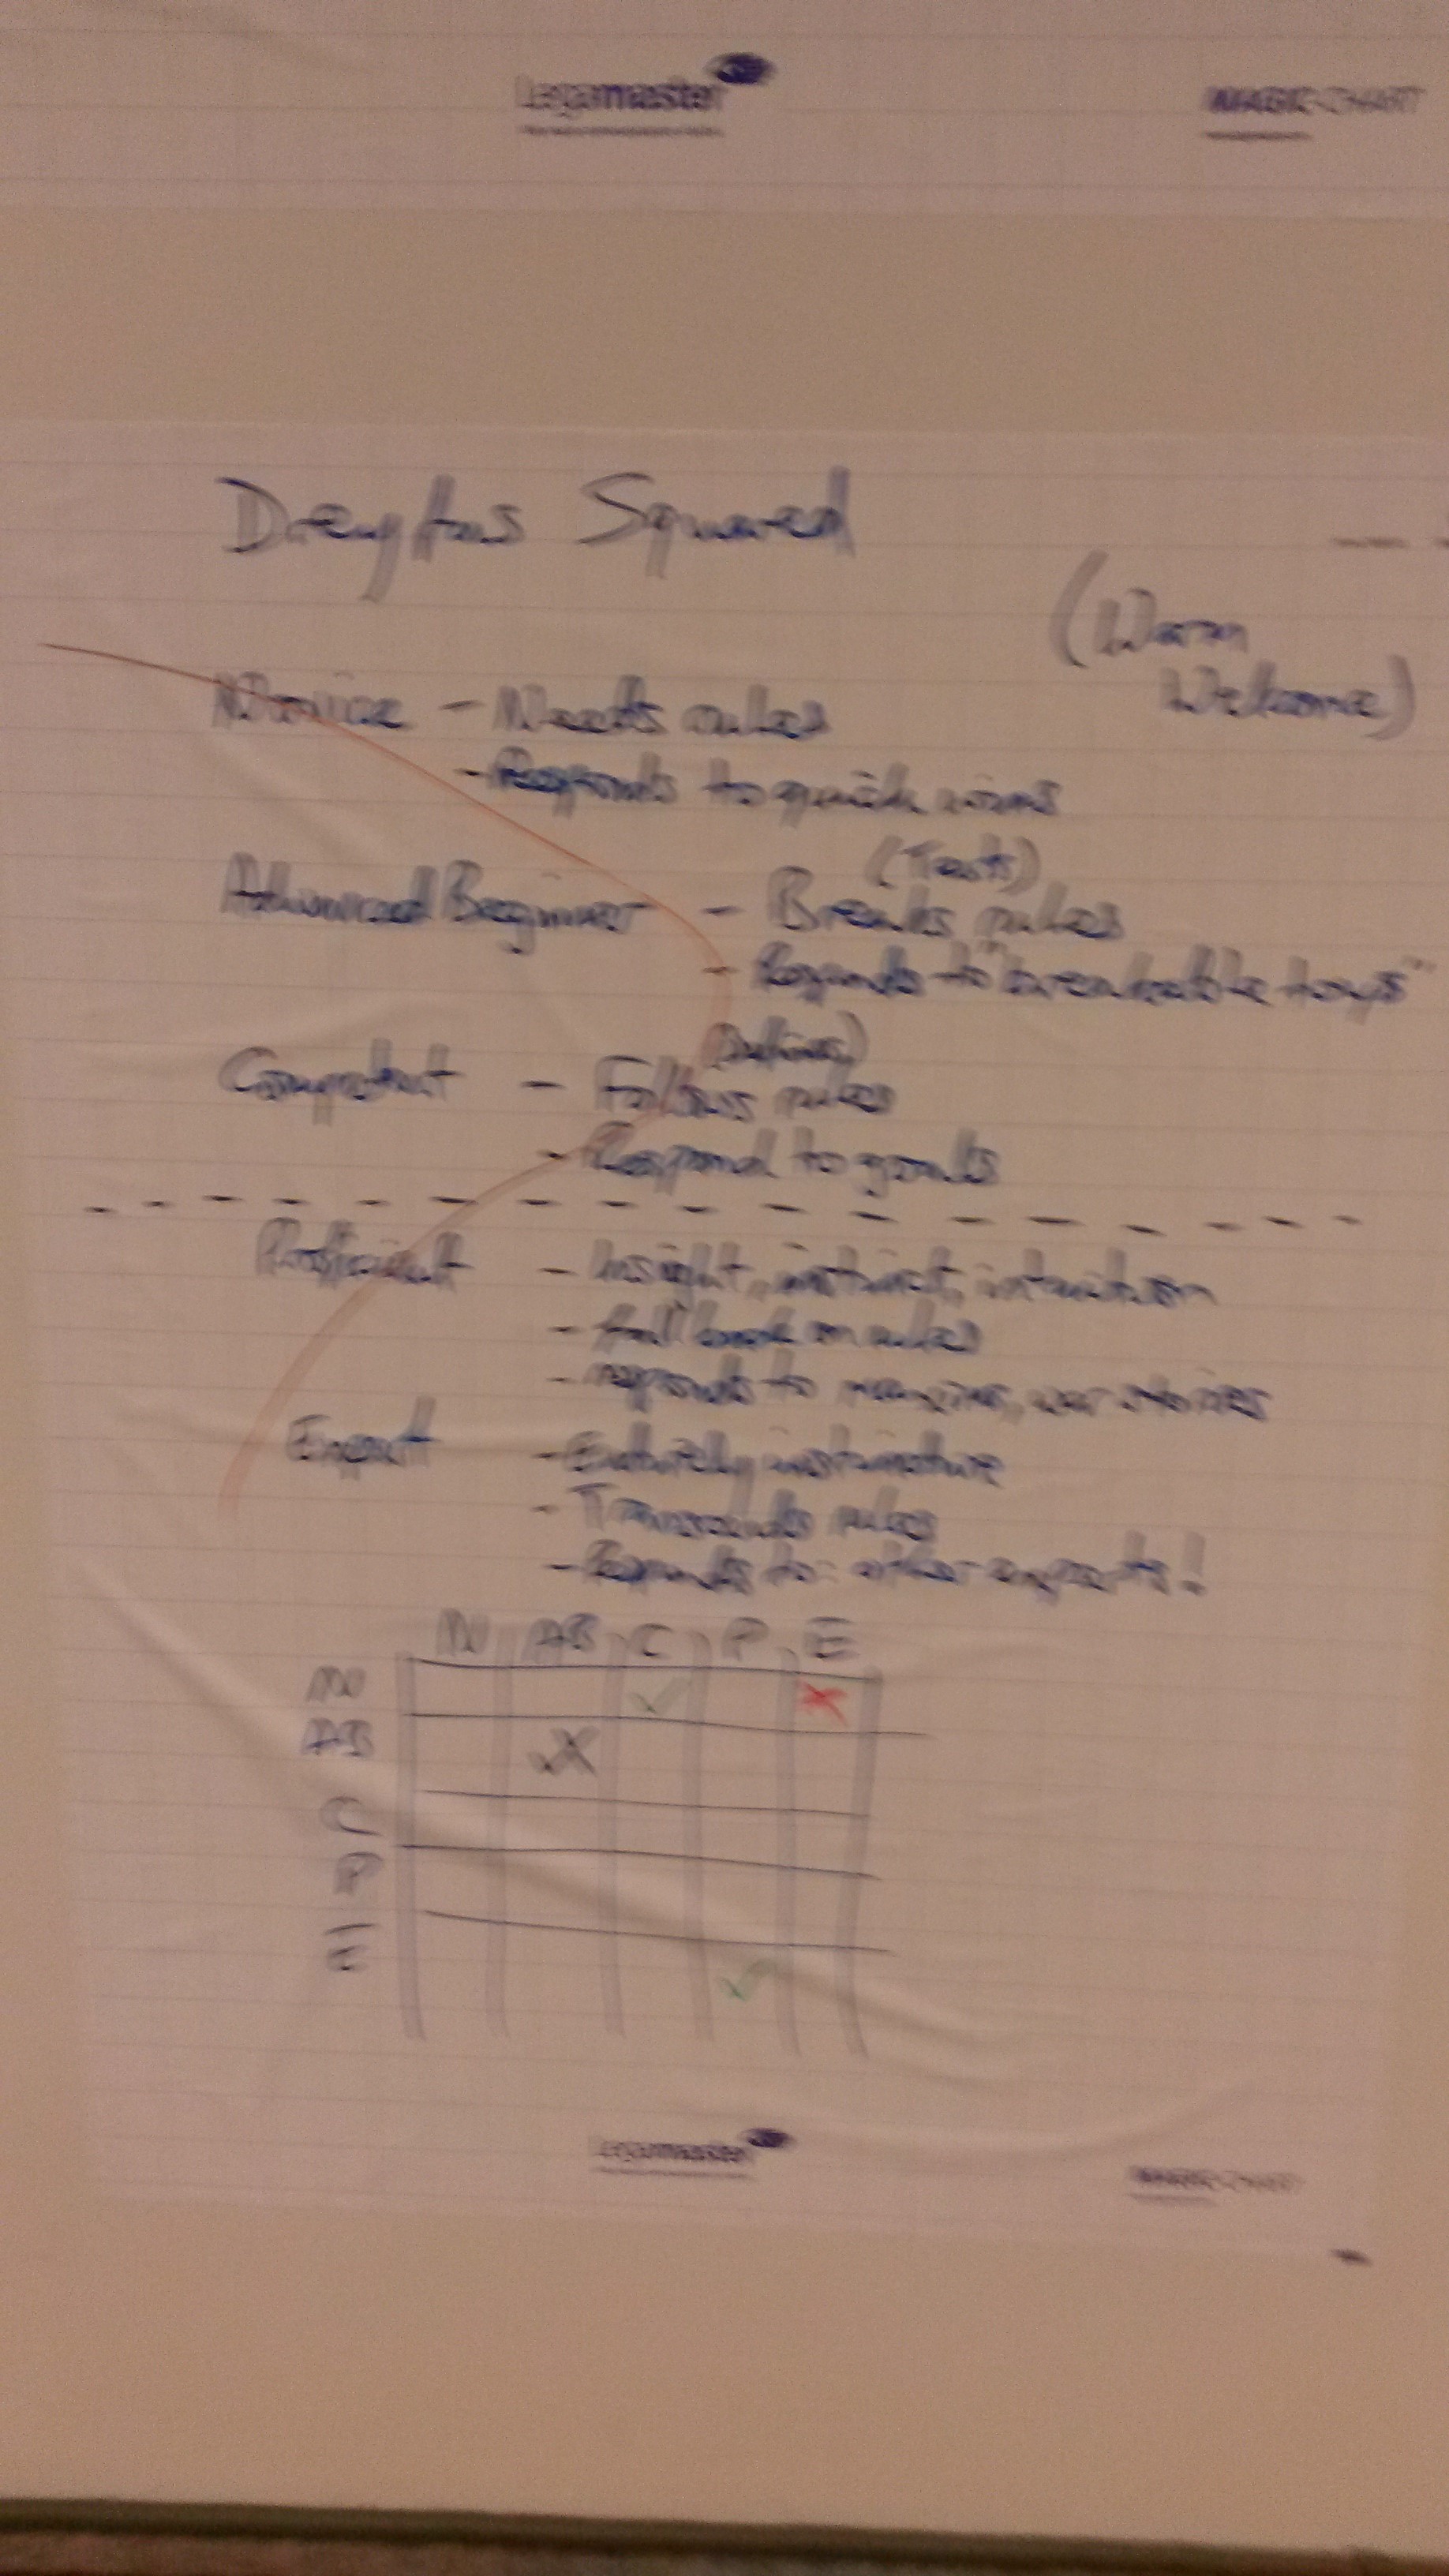 Legamaster
MAGIC-CHART
Dreyfus Squared
(Warm
Welcome)
Novice - Needs rules
- Responds to quick wins
(Tests)
Advanced Beginner - Breaks rules
- Responds to "breakable toys"
Competent - Follows rules
- Respond to goals
Proficient - Insight, instinct, intuition
- fall back on rules
- responds to maxims, war stories
Expert - Entirely instinctive
- Transcends rules
- Responds to: other experts!
N AB C P E
N ✓ ✗
AB ✓✗
C
P
E ✓
Legamaster
MAGIC-CHART